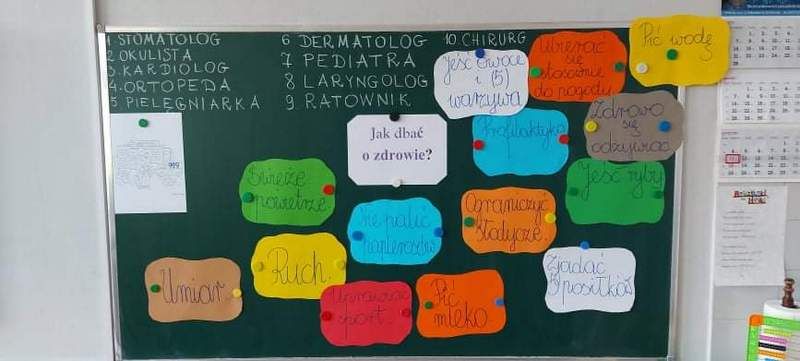 1. STOMATOLOG
2 OKULISTA
3. KARDIOLOG
4. ORTOPEDA
5 PIELĘGNIARKA
6 DERMATOLOG
7 PEDIATRA
8 LARYNGOLOG
9. RATOWNIK
10. CHIRURG
Jeść owoce
i (5)
warzywa
Ubierać
się
stosownie
do pogody
Pić wodę
Jak dbać
o zdrowie?
Profilaktyka
Zdrowo
się
odżywiać
Świeże
powietrze
Nie palić
papierosów
Ograniczyć
słodycze.
Jeść ryby
Umiar
Ruch.
Uprawiać
sport.
Pić
mleko.
Zjadać
5 posiłków